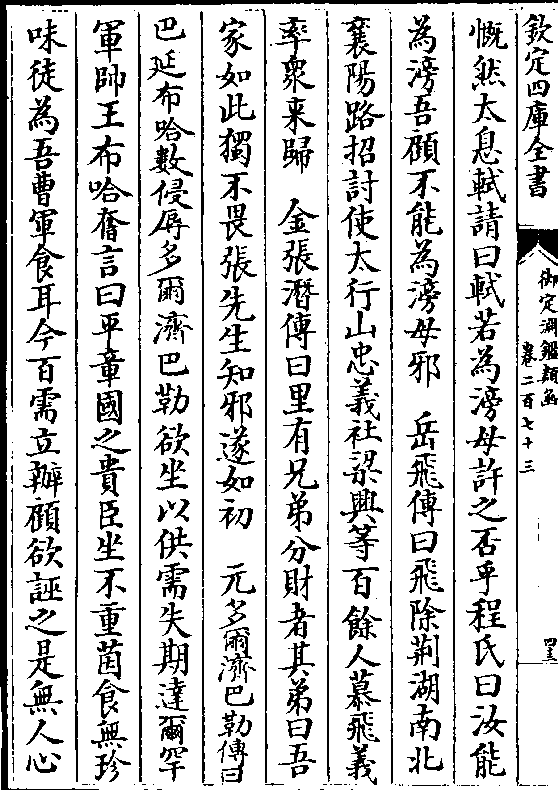 欽定四庫全書
御定淵鑑類函
卷二百七十三
四十五
慨然太息軾請曰軾若為滂母許之否乎程氏曰汝能
為滂吾顧不能為滂母邪　岳飛傳曰飛除荆湖南北
襄陽路招討使太行山忠義社梁興等百餘人慕飛義
率衆来歸　金張潛傳曰里有兄弟分財者其弟曰吾
家如此獨不畏張先生知邪遂如初　元多爾濟巴勒傳曰
巴延布哈數侵辱多爾濟巴勒欲坐以供需失期達爾罕
軍帥王布哈奮言曰平章國之貴臣坐不重茵食無珍
味徒為吾曹軍食耳今百需立辦顧欲誣之是無人心